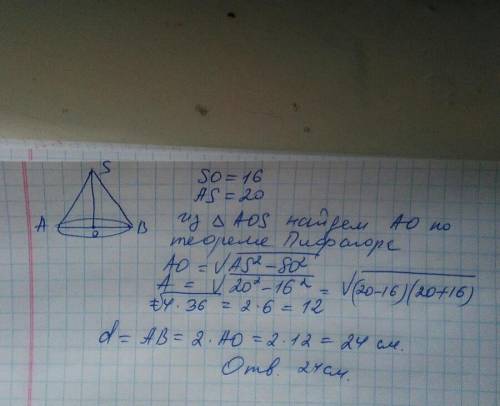 S
A
O
B
SO = 16
AS = 20
Из △ AOS найдем AO по
теореме Пифагора
AO = √AS² - SO²
A = √20² - 16² = √(20-16)(20+16)
= √4 · 36 = 2 · 6 = 12
d = AB = 2 · AO = 2 · 12 = 24 см.
Отв. 24 см.